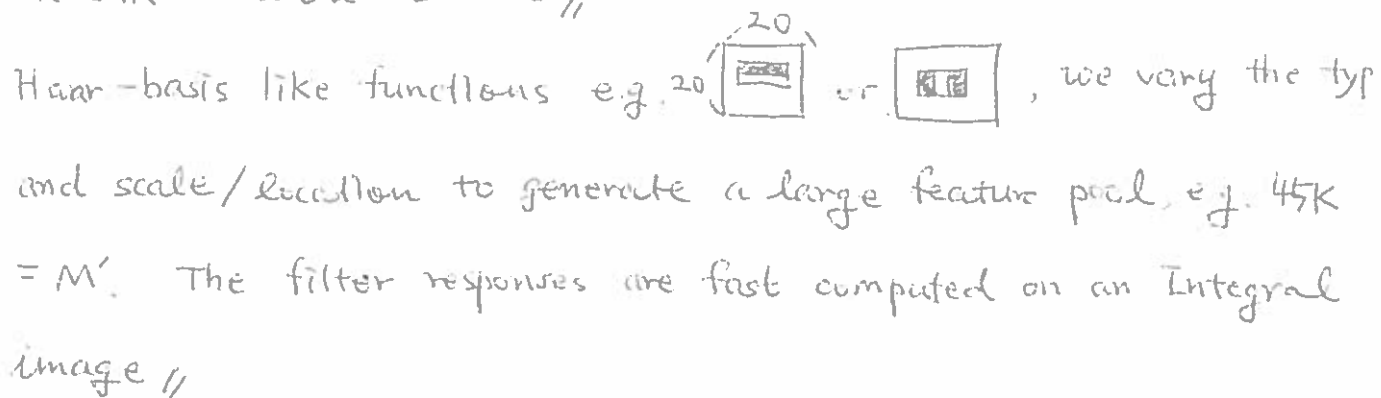 20
Haar-basis like functions e.g. 20 or , we vary the typ
and scale/location to generate a large feature pool e.g. 45K
= M'. The filter responses are fast computed on an Integral
image //